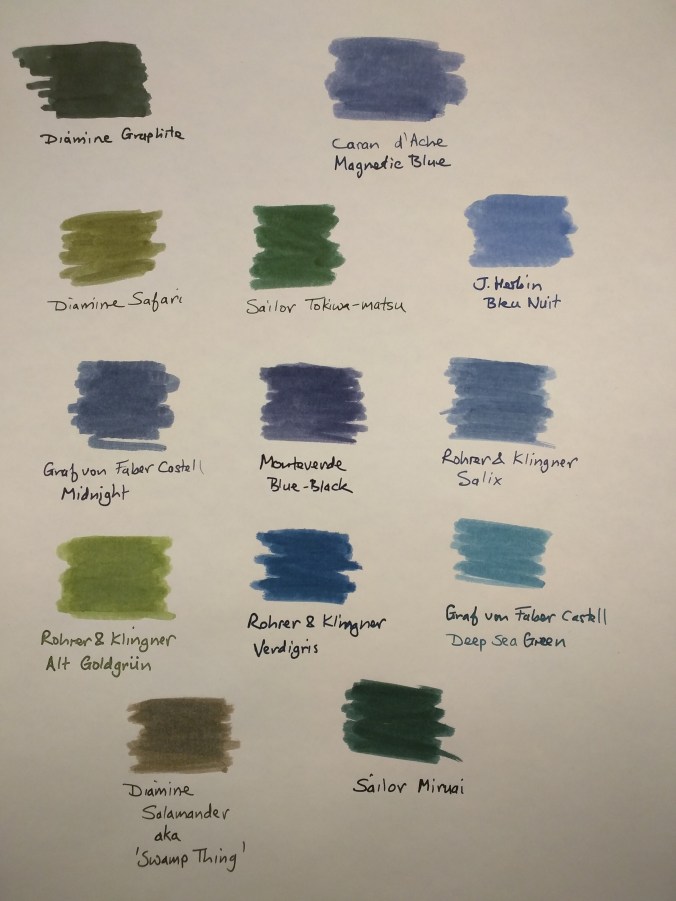 Diamine Graphite
Caran d'Ache
Magnetic Blue
Diamine Safari
Sailor Tokiwa-matsu
J. Herbin
Bleu Nuit
Graf von Faber Castell
Midnight
Monteverde
Blue-Black
Rohrer & Klingner
Salix
Rohrer & Klingner
Alt Goldgrün
Rohrer & Klingner
Verdigris
Graf von Faber Castell
Deep Sea Green
Diamine
Salamander
aka
'Swamp Thing'
Sailor Miruai